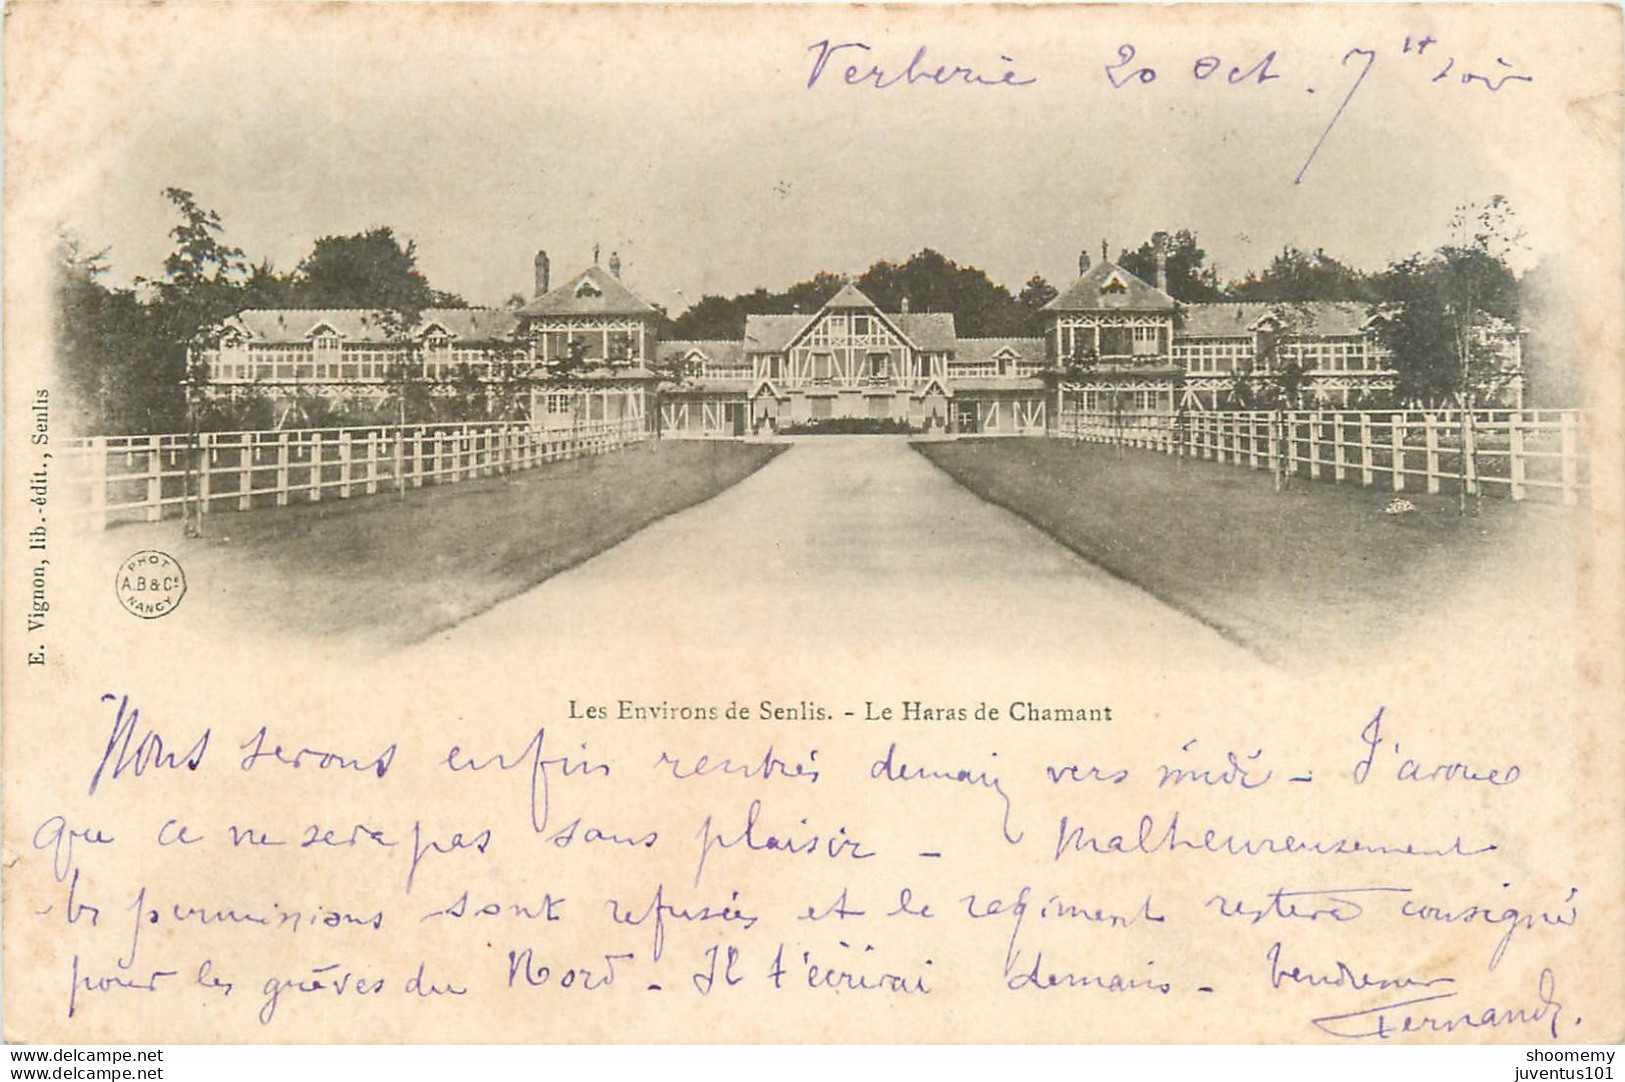 Verberie 20 Oct. 7H soir
E. Vignon, lib.-édit., Senlis
PHOT
A.B & Cie
NANCY
Les Environs de Senlis. - Le Haras de Chamant
Nous serons enfin rentrés demain vers midi - J'avoue
que ce ne sera pas sans plaisir - Malheureusement
les permissions sont refusées et le régiment restera consigné
pour les grèves du Nord - Je t'écrirai demain -
Fernand.
shoomemy
juventus101
www.delcampe.net
www.delcampe.net